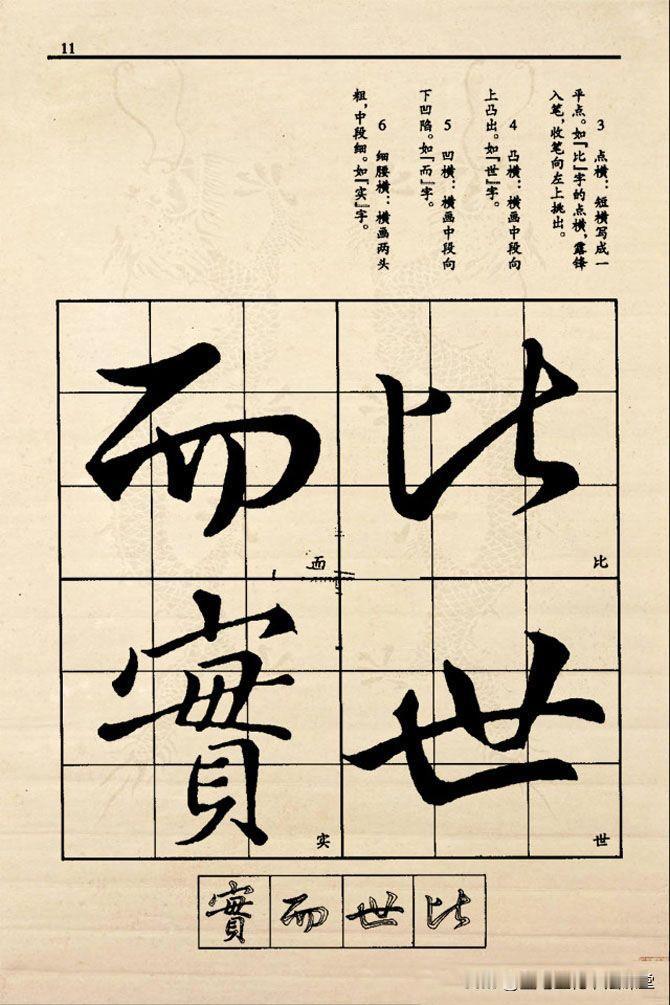 11
3 点横：短横写成一
平点。如『比』字的点横，露锋
入笔，收笔向左上挑出。
4 凸横：横画中段向
上凸出。如『世』字。
5 凹横：横画中段向
下凹陷。如『而』字。
6 细腰横：横画两头
粗，中段细。如『实』字。
比
比
世
世
而
而
實
实
實 而 世 比